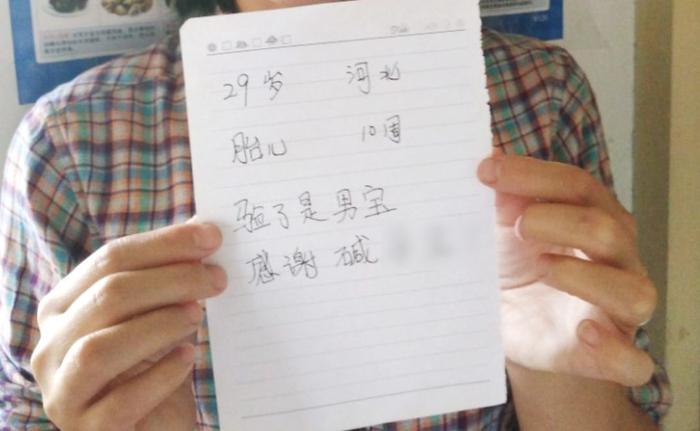 29岁 河北
胎心 10周
验了是男宝
感谢 碱